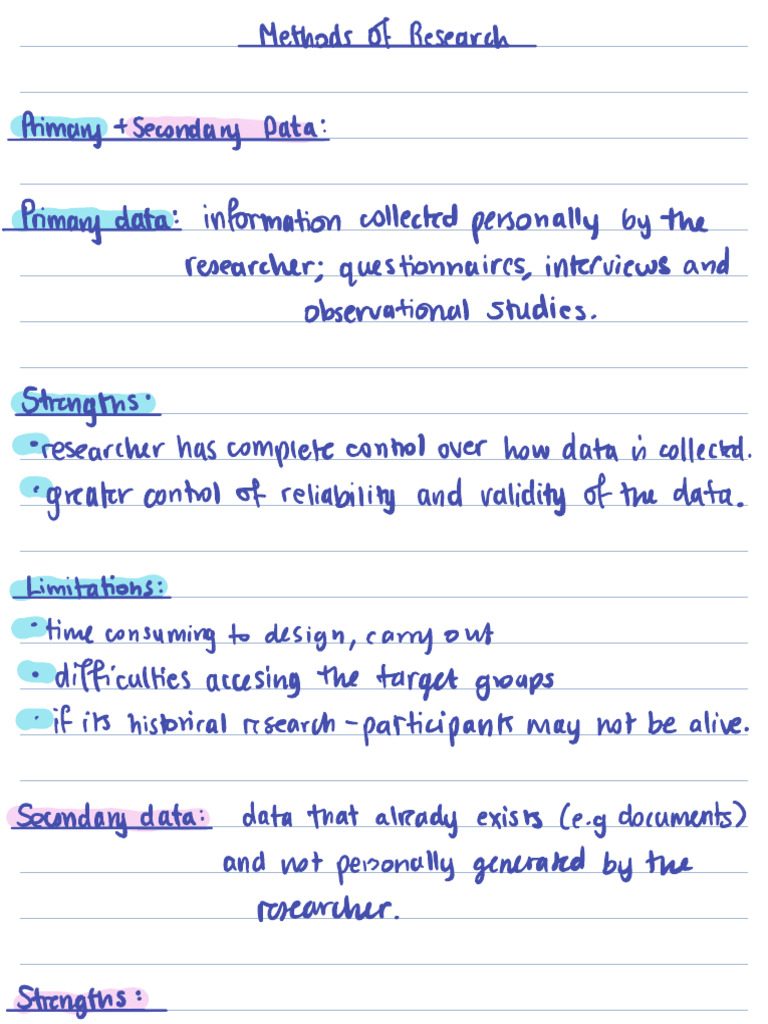 Methods of Research
Primary + Secondary Data:
Primary data: information collected personally by the
researcher; questionnaires, interviews and
observational studies.
Strengths:
• researcher has complete control over how data is collected.
• greater control of reliability and validity of the data.
Limitations:
• time consuming to design, carry out
• difficulties accesing the target groups
• if its historical research - participants may not be alive.
Secondary data: data that already exists (e.g documents)
and not personally generated by the
researcher.
Strengths: